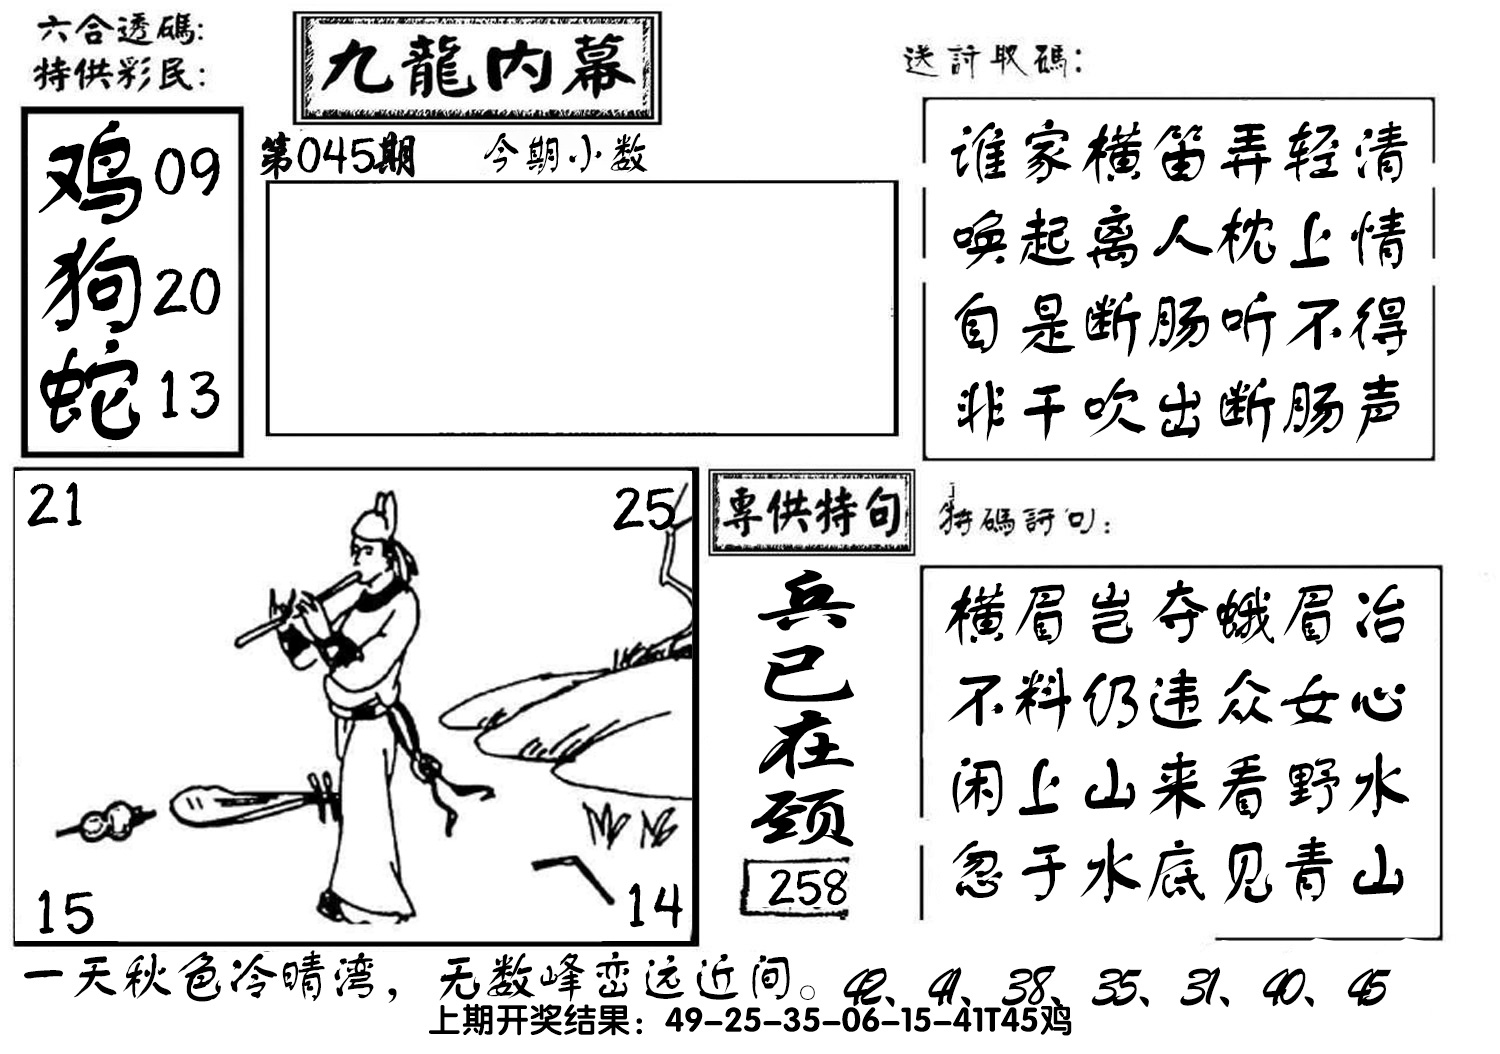 六合透碼:
特供彩民:
九龍內幕
送詩取碼:
鸡09
狗20
蛇13
第045期 今期小数
谁家横笛弄轻清
唤起离人枕上情
自是断肠听不得
非干吹出断肠声
21
25
15
14
專供特句
兵已在颈
258
特碼詩句:
横眉岂夺蛾眉冶
不料仍违众女心
闲上山来看野水
忽于水底见青山
一天秋色冷晴湾，无数峰峦远近间。42、41、38、35、31、40、45
上期开奖结果：49-25-35-06-15-41T45鸡